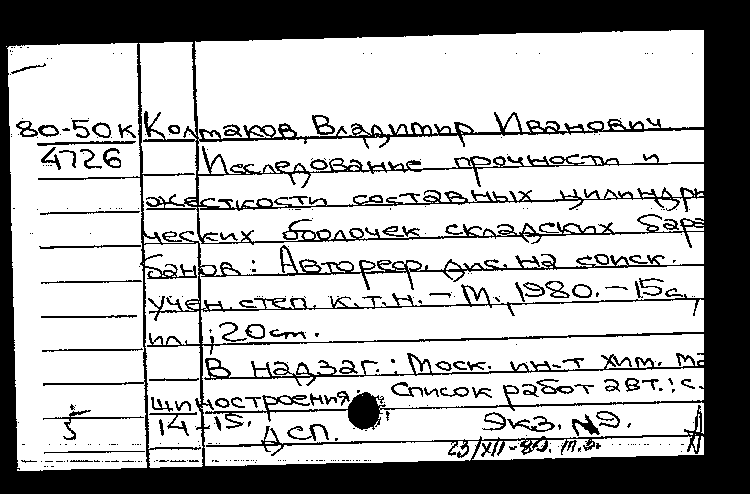 80-50к Колтаков, Владимир Иванович
4726 Исследование прочности и
жесткости составных цилиндри
ческих оболочек складских бара
банов: Автореф. дис. на соиск.
учен. степ. к.т.н. - М., 1980. - 15 с.,
ил.; 20 см.
В надзаг.: Моск. ин-т хим. ма
шиностроения. Список работ авт.: с.
14-15.
5 АСП. Экз. №2.
23/XII-80.